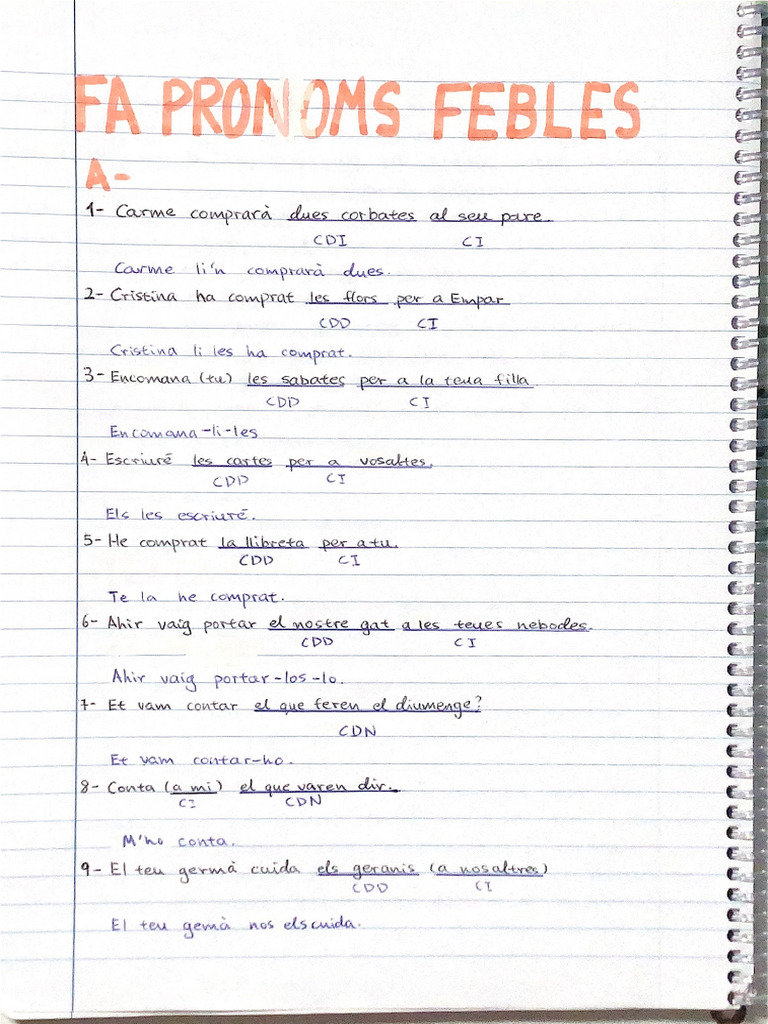 FA PRONOMS FEBLES
A-
1- Carme comprarà dues corbates al seu pare.
CDI CI
Carme li'n comprarà dues.
2- Cristina ha comprat les flors per a Empar
CDD CI
Cristina li les ha comprat.
3- Encomana (tu) les sabates per a la teua filla
CDD CI
Encomana-li-les
4- Escriuré les cartes per a vosaltes.
CDD CI
Els les escriuré.
5- He comprat la llibreta per a tu.
CDD CI
Te la he comprat.
6- Ahir vaig portar el nostre gat a les teues nebodes.
CDD CI
Ahir vaig portar-los-lo.
7- Et vam contar el que feren el diumenge?
CDN
Et vam contar-ho.
8- Conta (a mi) el que varen dir.
CI CDN
M'ho conta.
9- El teu germà cuida els geranis (a nosaltres)
CDD CI
El teu gemà nos els cuida.